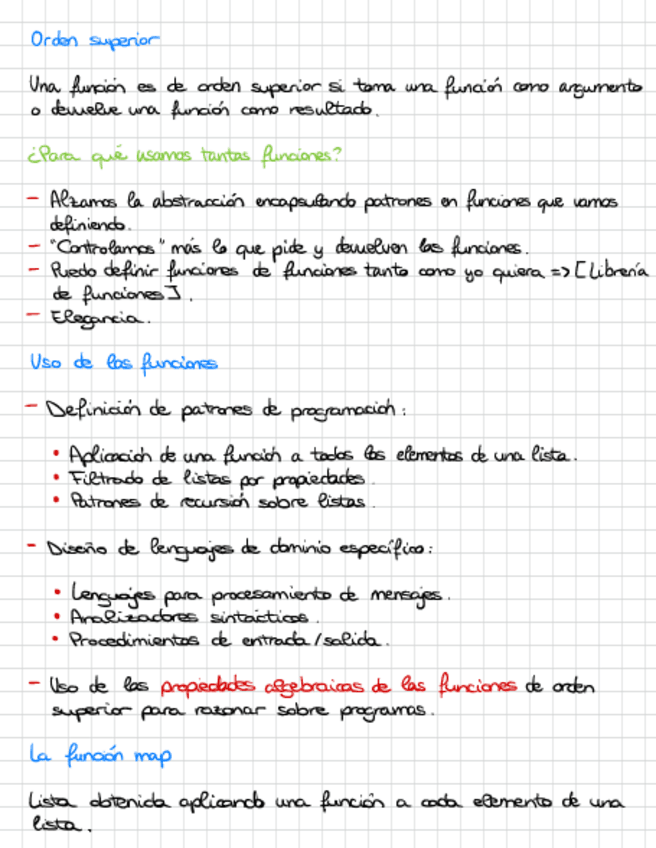 Orden superior
Una función es de orden superior si toma una función como argumento
o devuelve una función como resultado.
¿Para qué usamos tantas funciones?
- Alzamos la abstracción encapsulando patrones en funciones que vamos
definiendo.
- "Controlamos" más lo que pide y devuelven las funciones.
- Puedo definir funciones de funciones tanto como yo quiera => [Librería
de funciones].
- Elegancia.
Uso de las funciones
- Definición de patrones de programación:
• Aplicación de una función a todos los elementos de una lista.
• Filtrado de listas por propiedades.
• Patrones de recursión sobre listas.
- Diseño de lenguajes de dominio específico:
• Lenguajes para procesamiento de mensajes.
• Analizadores sintácticos.
• Procedimientos de entrada/salida.
- Uso de las propiedades algebraicas de las funciones de orden
superior para razonar sobre programas.
La función map
Lista obtenida aplicando una función a cada elemento de una
lista.